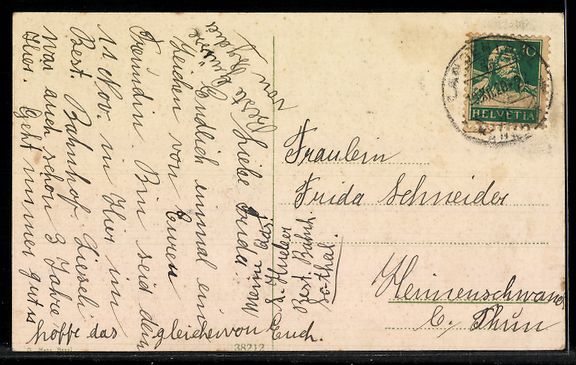 Liebe Frida!
Endlich einmal ein
Zeichen von Eurer
Freundin. Bin seid den
11 Nov. in Hier im
Rest. Bahnhof. Liesel
war auch schon 3 Jahre
Hier. Geht immer gut u
hoffe das gleiche von Euch.
Beste Grüsse
von
Meine
Rest. Bahnh.
Fraulein
Frida Schneider
Heimenschwand
b/ Thun
10
HELVETIA
38212